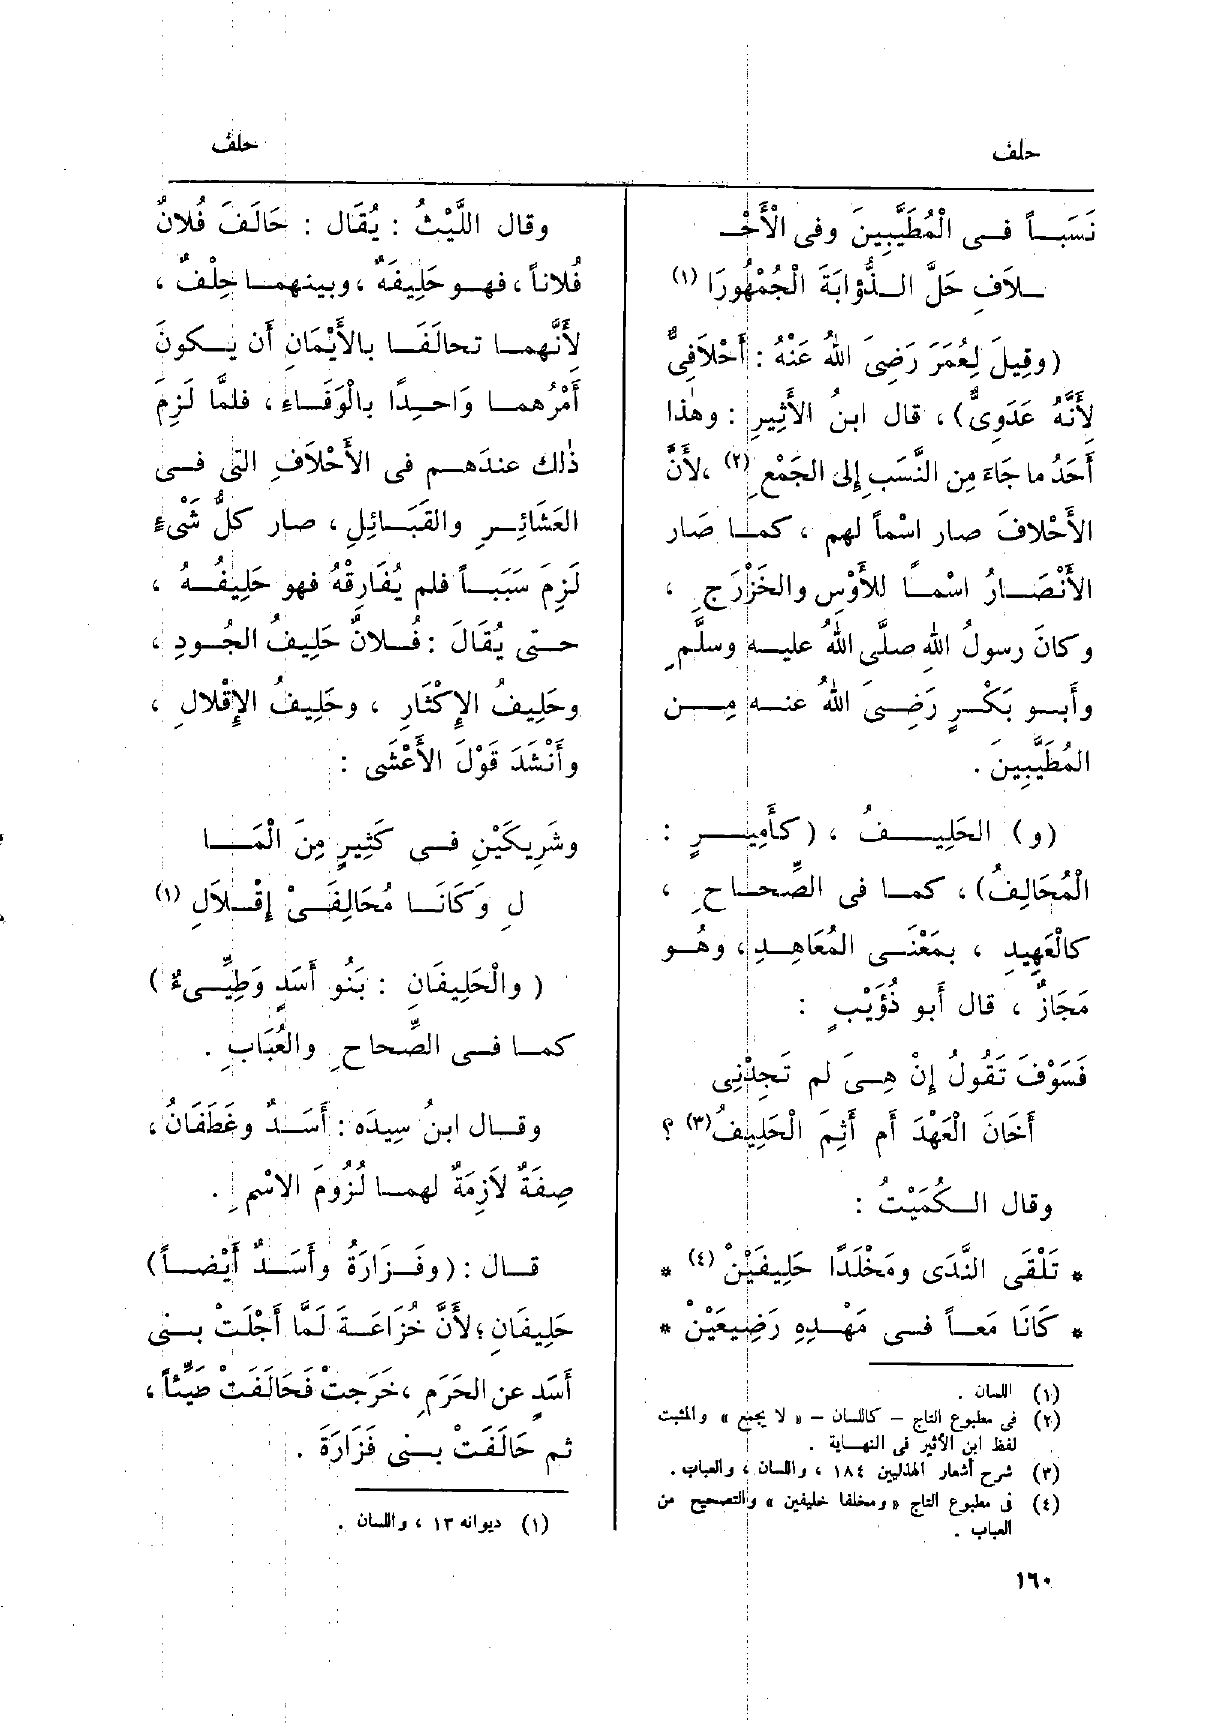 حلف
حلف
نَسَبـاً فـى الْمُطَيَّبِينَ وفى الْأَحْـ
ـلاَفِ حَلَّ الـذُّؤابَةَ الْجُمْهُورَا (١)
(وقِيلَ لِعُمَرَ رَضِىَ اللهُ عَنْهُ : أَحْلاَفِىٌّ
لِأَنَّهُ عَدَوِىٌّ) ، قال ابنُ الأَثِيرِ : وهٰذا
أَحَدُ ما جَاءَ مِن النَّسَبِ إِلى الجَمْعِ (٢) ، لأَنَّ
الأَحْلافَ صار اسْماً لهم ، كمـا صَار
الأَنْصَـارُ اسْمـاً للأَوْسِ والخَزْرَجِ ،
وكانَ رسولُ اللهِ صلَّى اللهُ عليـه وسلَّم
وأَبـو بَكْـرٍ رَضِـىَ اللهُ عنـه مِـن
المُطَيَّبِينَ .
(و) الحَلِيـفُ ، (كأَمِيـرٍ :
الْمُحَالِفُ) ، كمـا فى الصِّحـاحِ ،
كالْعَهِيدِ ، بمَعْنَـى المُعَاهِـدِ ، وهُـو
مَجَازٌ ، قال أَبو ذُؤَيْبٍ :
فَسَوْفَ تَقُولُ إِنْ هِـىَ لم تَجِدْنِى
أَخَانَ الْعَهْدَ أَم أَثِمَ الْحَلِيفُ (٣) ؟
وقال الـكُمَيْتُ :
* تَلْقَى النَّدَى ومَخْلَدًا حَلِيفَيْنْ (٤) *
* كَانَا مَعـاً فـى مَهْـدِهِ رَضِيعَيْنْ *
(١) اللسان .
(٢) فى مطبوع التاج – كاللسان – « لا يجمع » والمثبت
لفظ ابن الأثير فى النهـاية .
(٣) شرح أشعار الهذليين ١٨٤ ، واللسان ، والعباب .
(٤) فى مطبوع التاج « ومخلفا خليفين » والتصحيح من
العباب .
١٦٠
وقال اللَّيْثُ : يُقَال : حَالَفَ فُلانٌ
فُلاناً ، فهـو حَلِيفَهٌ ، وبينهمـا حِلْفٌ ،
لِأَنَّهمـا تحالَفَـا بالأَيْمَانِ أَن يَـكونَ
أَمْرُهمـا وَاحِـدًا بالْوَفَـاءِ ، فلمَّا لَزِمَ
ذٰلك عندَهـم فى الأَحْلافِ التى فـى
العَشَائِـرِ والقَبَـائِلِ ، صار كلُّ شَىْءٍ
لَزِمَ سَبَبـاً فلم يُفَارِقْهُ فهو حَلِيفُـهُ ،
حتـى يُقَالَ : فُـلانٌ حَلِيفُ الجُـودِ ،
وحَلِيفُ الإِكْثَارِ ، وحَلِيفُ الإِقْلالِ ،
وأَنْشَدَ قَوْلَ الأَعْشَى :
وشَرِيكَيْنِ فـى كَثِيرٍ مِنَ الْمَـا
لِ وَكَانَـا مُحَالِفَـىْ إِقْـلاَلِ (١)
( والْحَلِيفَانِ : بَنُو أَسَدٍ وَطَيِّـىءٌ )
كمـا فـى الصِّحاحِ والعُبَابِ .
وقـال ابنُ سِيدَه : أَسَـدٌ وغَطَفَانُ ،
صِفَةٌ لاَزِمَةٌ لهمـا لُزُومَ الاسْمِ .
قـال : (وفَـزَارَةُ وأَسَـدٌ أَيْضـاً)
حَلِيفَانِ ؛ لأَنَّ خُزَاعَـةَ لَمَّا أَجْلَتْ بـنى
أَسَدٍ عن الحَرَمِ ، خَرَجتْ فَحَالَفَتْ طَيِّئاً ،
ثم حَالَفَتْ بـنى فَزَارَةَ .
(١) ديوانه ١٣ ، واللسان .